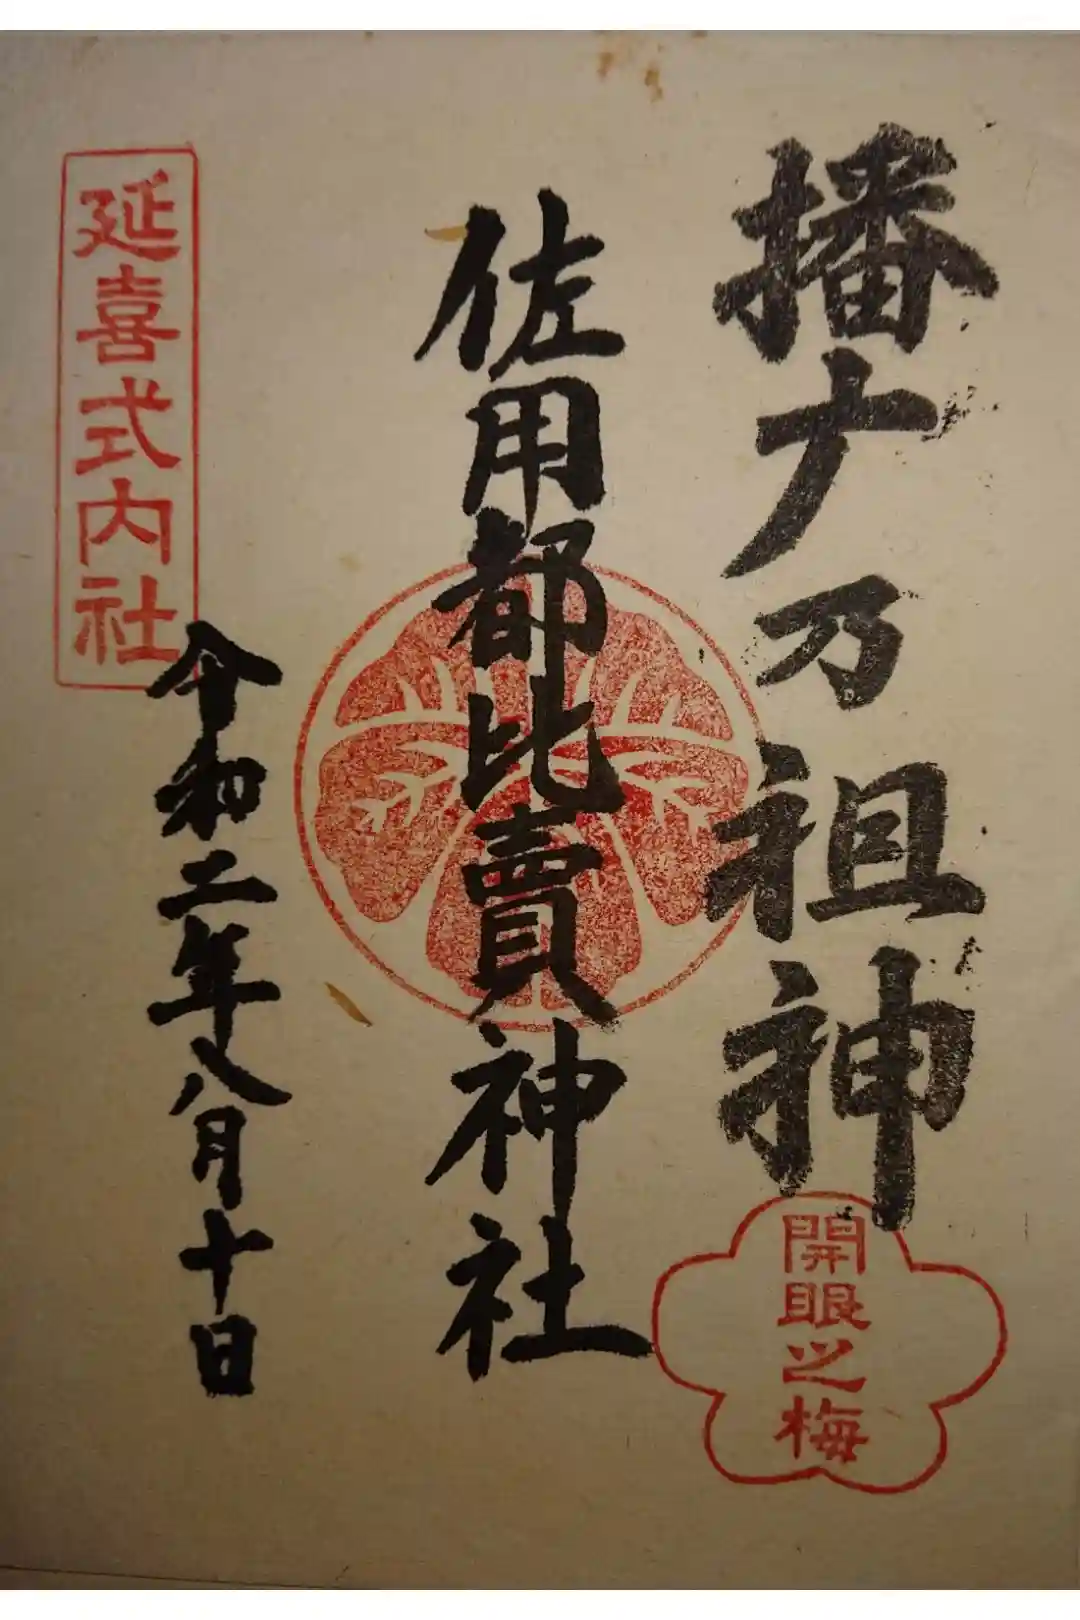 播ナ乃祖神
開眼之梅
佐用都比賣神社
延喜式内社
令和二年八月十日